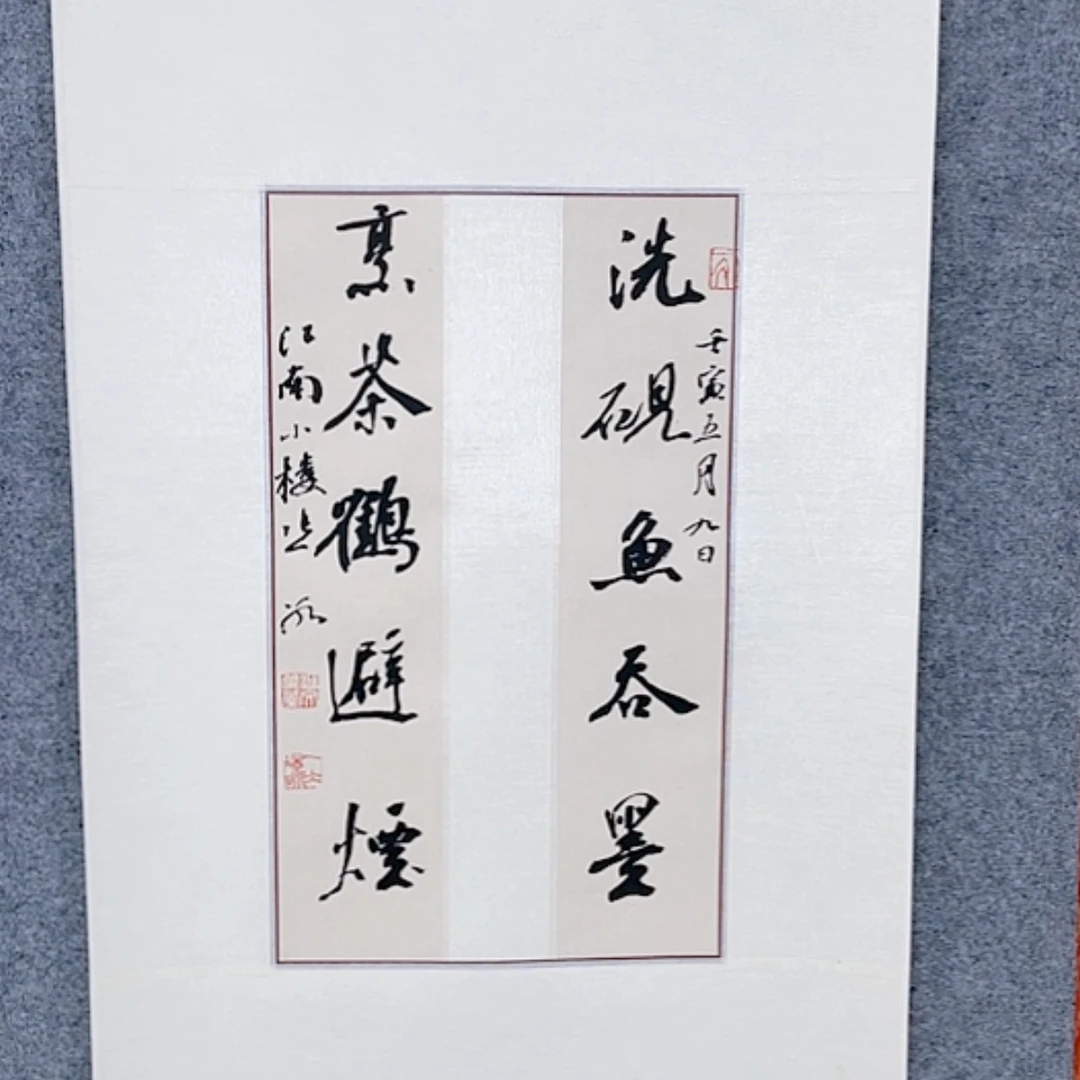 洗硯魚吞墨
壬寅五月九日
烹茶鶴避煙
江南小樓